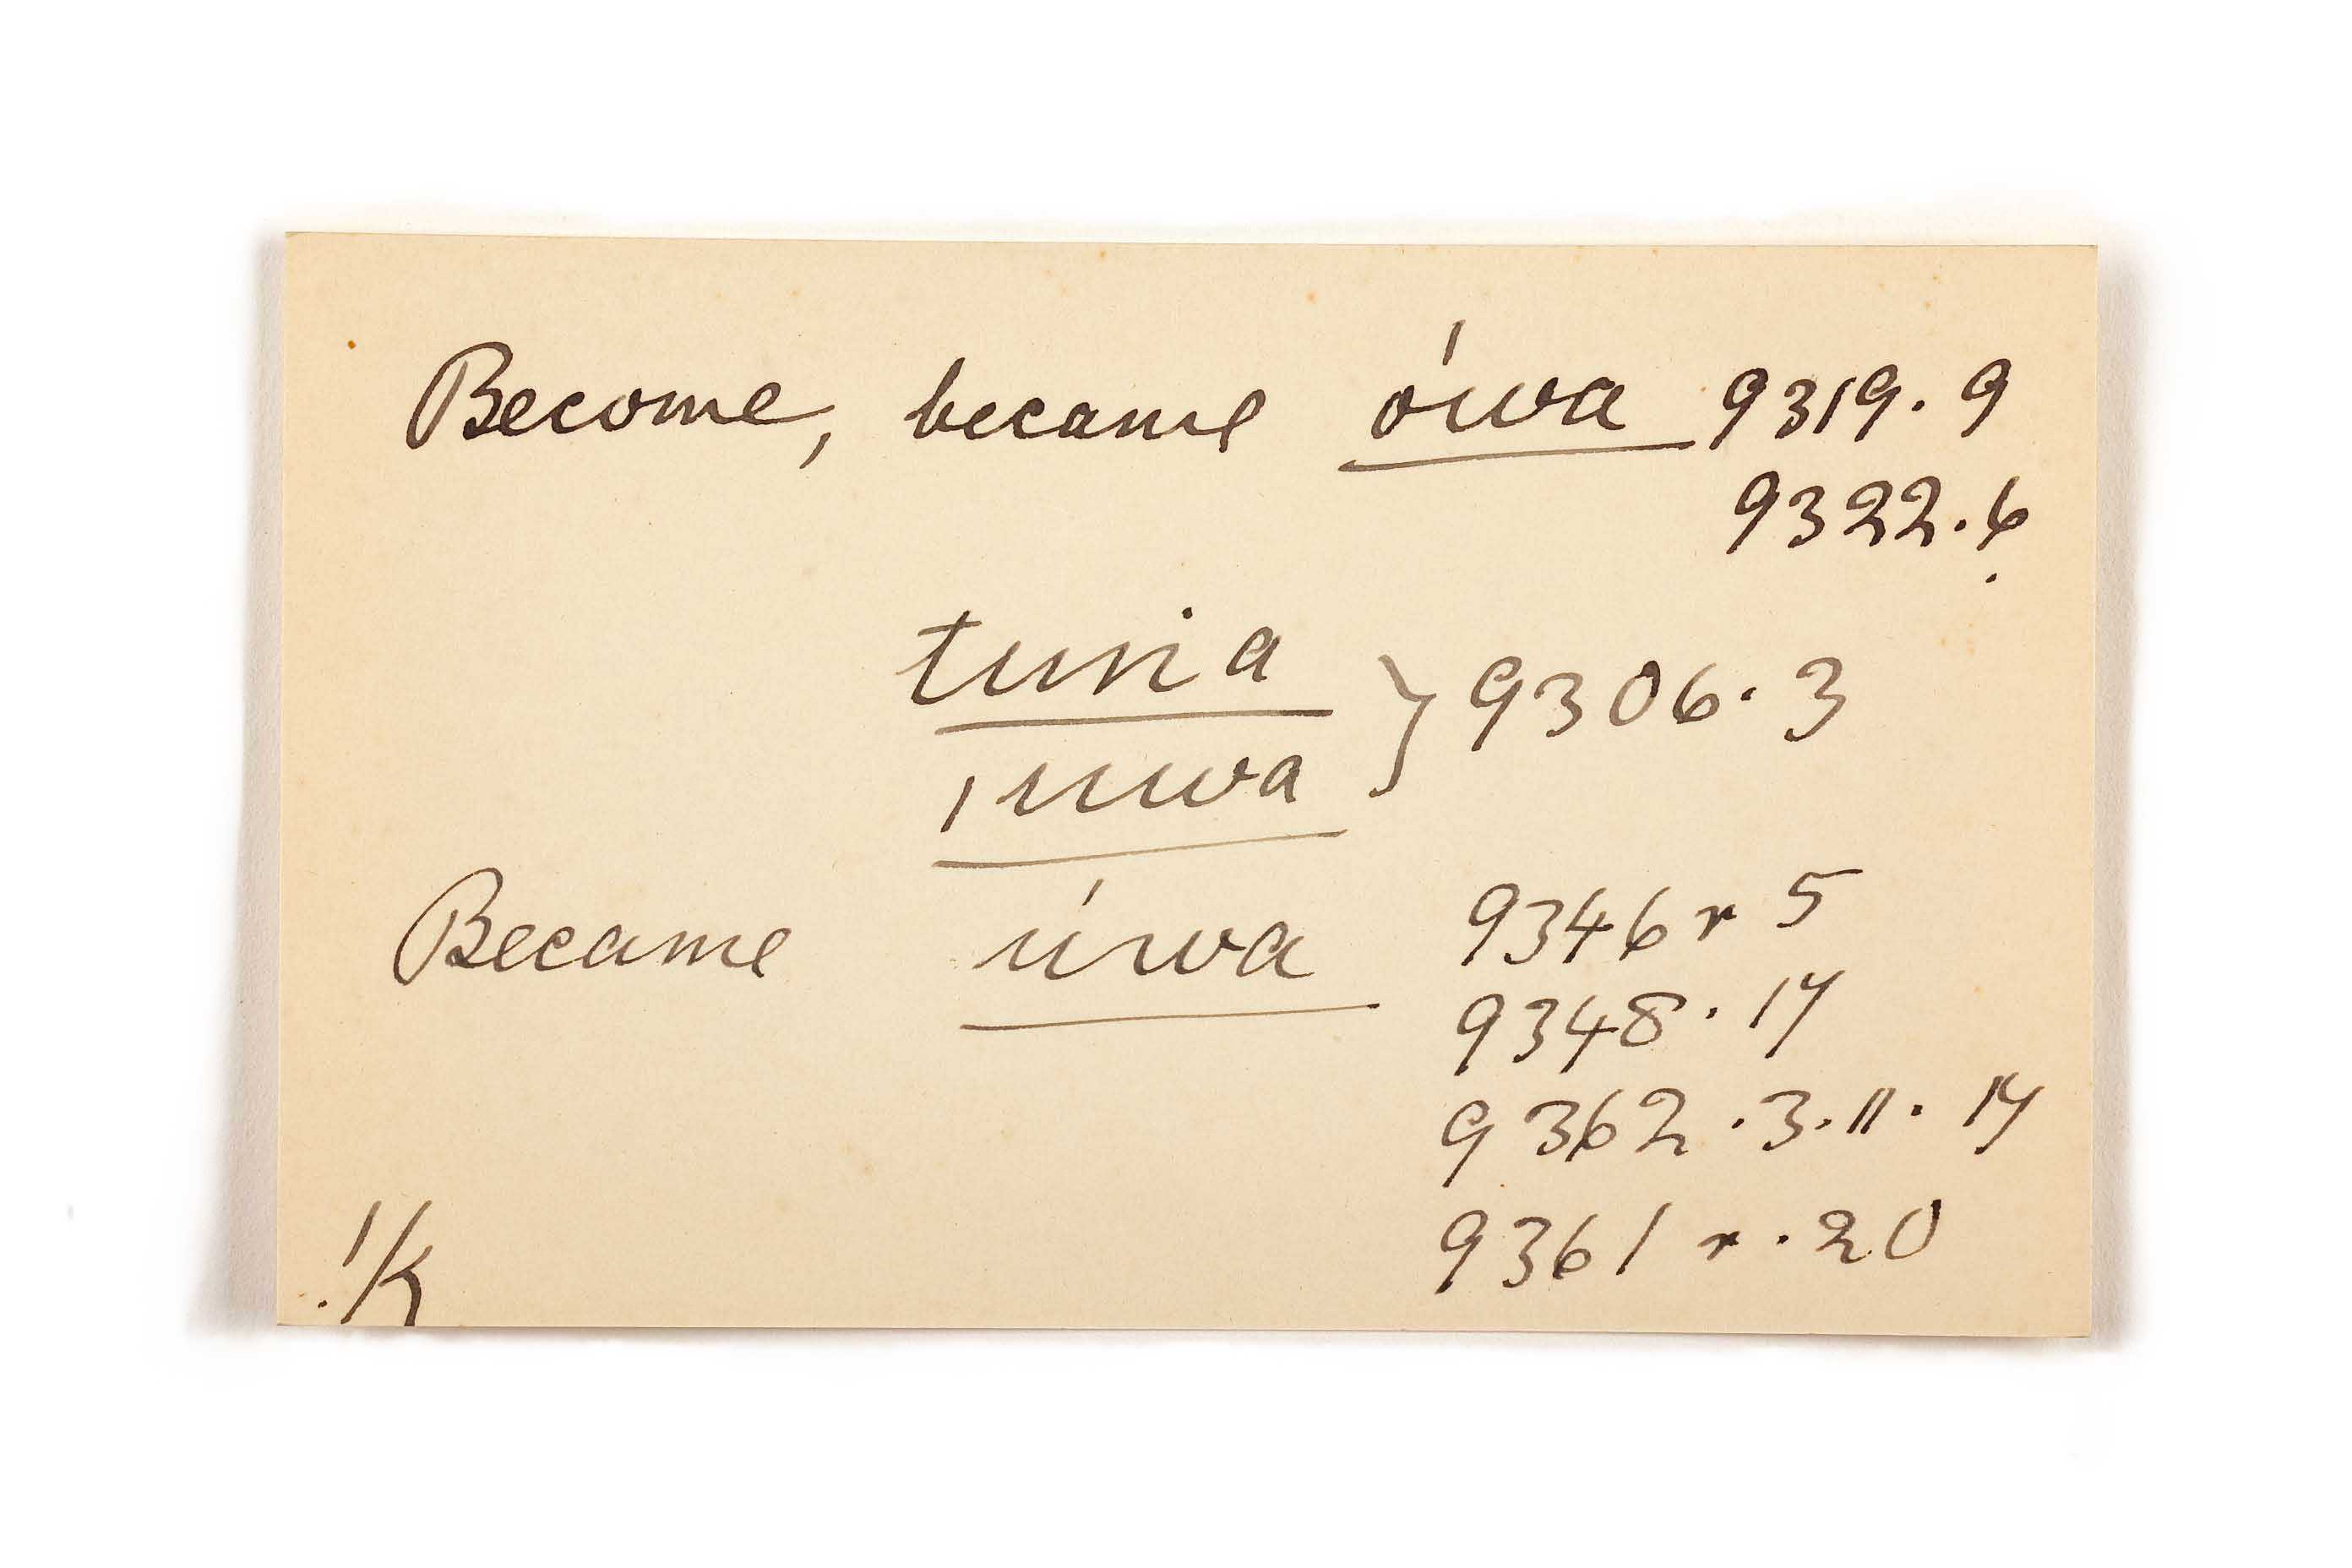 Become, became óuwa 9319.9
9322.6
tuni a } 9306.3
ınuwa
Became úwa 9346r 5
9348.17
9362.3.11.17
9361r.20
!k